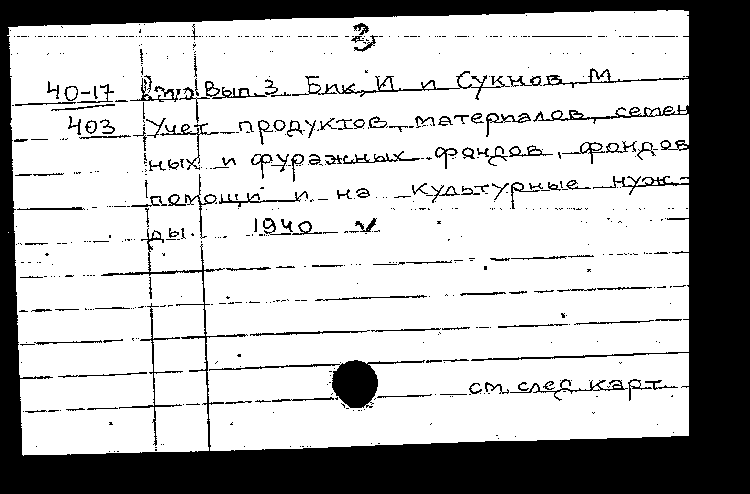 3
40-17 Вып. 3. Бик, И. и Сукнов, М.
403 Учет продуктов, материалов, семен
ных и фуражных фондов, фондов
помощи и на культурные нуж-
ды. 1940 v
см. след карт.